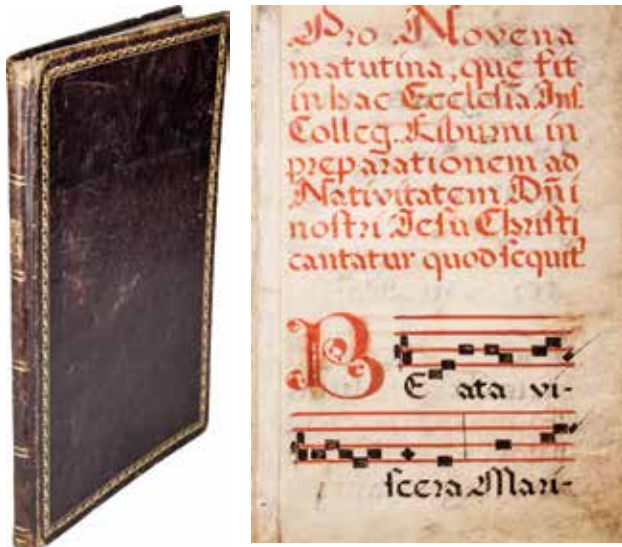 Pro Novena
matutina, que fit
in hac Ecclesia Ins.
Colleg. Liburni in
preparationem ad
Nativitatem Dñi
nostri Jesu Christi
cantatur quod sequit
BEata vi-
scera Mari-